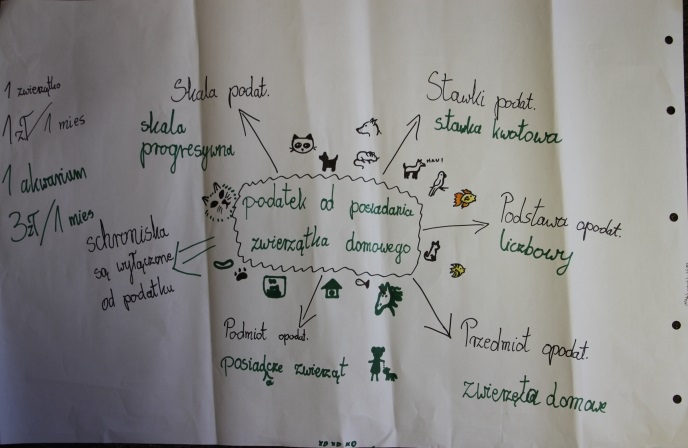 1 zwierzątko
1zł/1 mies
1 akwarium
3zł/1 mies
Skala podat.
skala
progresywna
Stawki podat.
stawka kwotowa
HAU!
podatek od posiadania
zwierzątka domowego
Podstawa opodat.
liczbowy
schroniska
są wyłączone
od podatku
Podmiot opodat.
posiadcze zwierząt
Przedmiot opodat.
zwierzęta domowe